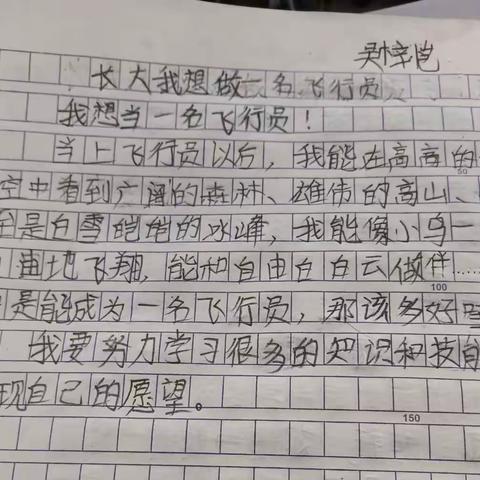 吴梓恺
长大我想做一名飞行员
我想当一名飞行员！
当上飞行员以后，我能在高高的
空中看到广阔的森林、雄伟的高山、
至是白雪皑皑的冰峰，我能像小鸟一
由地飞翔，能和自由白白云做伴……
是能成为一名飞行员，那该多好
我要努力学习很多的知识和技
现自己的愿望。
50
100
150